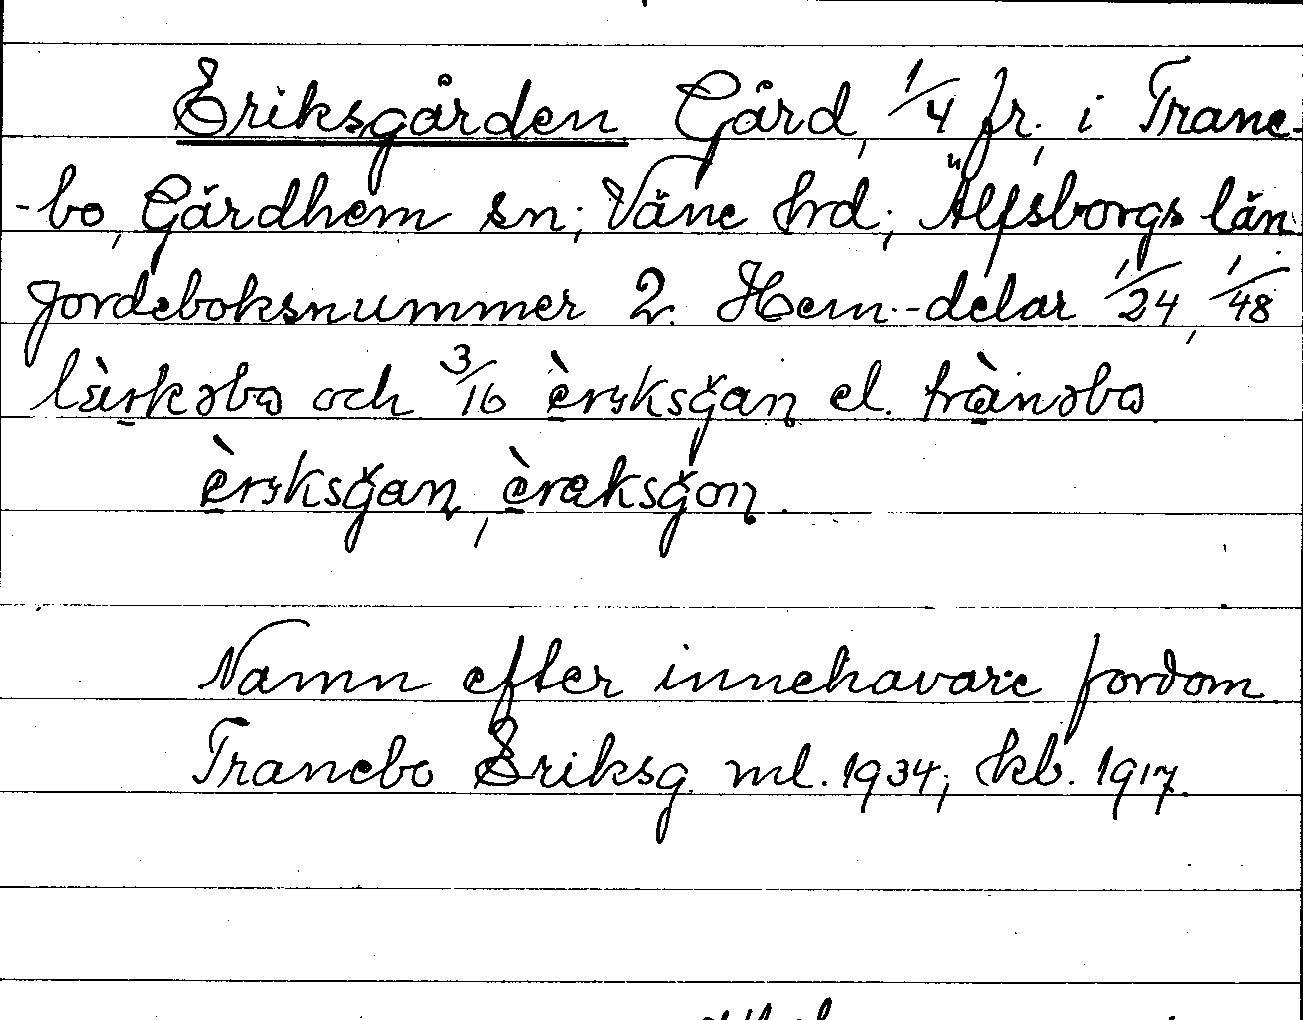 Eriksgården Gård, 1/4 fr. i Trane-
-bo, Gärdhem sn; Väne hd; Älfsborgs län
Jordeboksnummer 2. Hem.-delar 1/24, 1/48
och 3/16 èrıksğan el. trànəbo
èrıksğan, èrəksğon.
Namn efter innehavare fordom
Tranebo Eriksg. ml. 1934; kb. 1917.